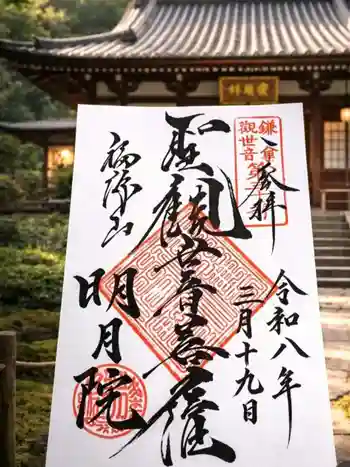 奉拝
鎌倉
観世音第
令和八年
三月十九日
聖観世音菩薩
福源山
明月院